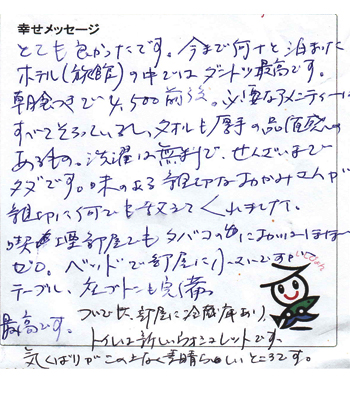 幸せメッセージ
とても良かったです。今まで何十と泊まった
ホテル(旅館)の中ではダントツ最高です。
朝食つきで4,500前後。必要なアメニティーは
すべてそろっているし、タオルも厚手の品質感の
あるもの。洗濯は無料で、せんざいまで
タダです。味のある親切なおかみさんが
親切に何でも教えてくれました。
喫煙部屋でもタバコの におい ほぼ
ゼロ。ベッドで部屋に です。
テーブル、 も完備。
最高です。 部屋に冷蔵庫あり、
トイレは新しいウォシュレットです。
気くばりがこの上なく素晴らしいところです。